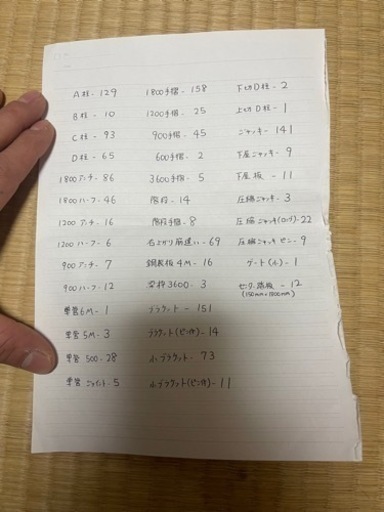 A柱 - 129
B柱 - 10
C柱 - 93
D柱 - 65
1800アンチ - 86
1800ハーフ - 46
1200アンチ - 16
1200ハーフ - 6
900アンチ - 7
900ハーフ - 12
単管6M - 1
単管5M - 3
単管500 - 28
単管ジョイント - 5
1800手摺 - 158
1200手摺 - 25
900手摺 - 45
600手摺 - 2
3600手摺 - 5
階段 - 14
階段手摺 - 8
右上がり筋違い - 69
鋼製板4M - 16
梁枠3600 - 3
ブラケット - 151
ブラケット(ピン付) - 14
小ブラケット - 73
小ブラケット(ピン付) - 11
下切D柱 - 2
上切D柱 - 1
ジャッキー - 141
下屋ジャッキー - 9
下屋板 - 11
圧縮ジャッキー - 3
圧縮ジャッキ(ロング) - 22
圧縮ジャッキピン - 9
ゲート(ル) - 1
センター踏板 - 12
(150mm×1800mm)